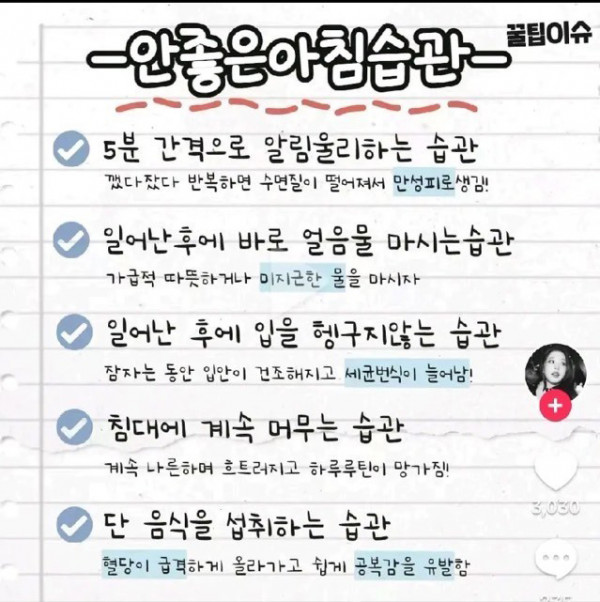 꿀팁이슈
-안좋은아침습관-
5분 간격으로 알림울리하는 습관
깼다잤다 반복하면 수면질이 떨어져서 만성피로생김!
일어난후에 바로 얼음물 마시는습관
가급적 따뜻하거나 미지근한 물을 마시자
일어난 후에 입을 헹구지않는 습관
잠자는 동안 입안이 건조해지고 세균번식이 늘어남!
침대에 계속 머무는 습관
계속 나른하며 흐트러지고 하루루틴이 망가짐!
단 음식을 섭취하는 습관
혈당이 급격하게 올라가고 쉽게 공복감을 유발함
3,030